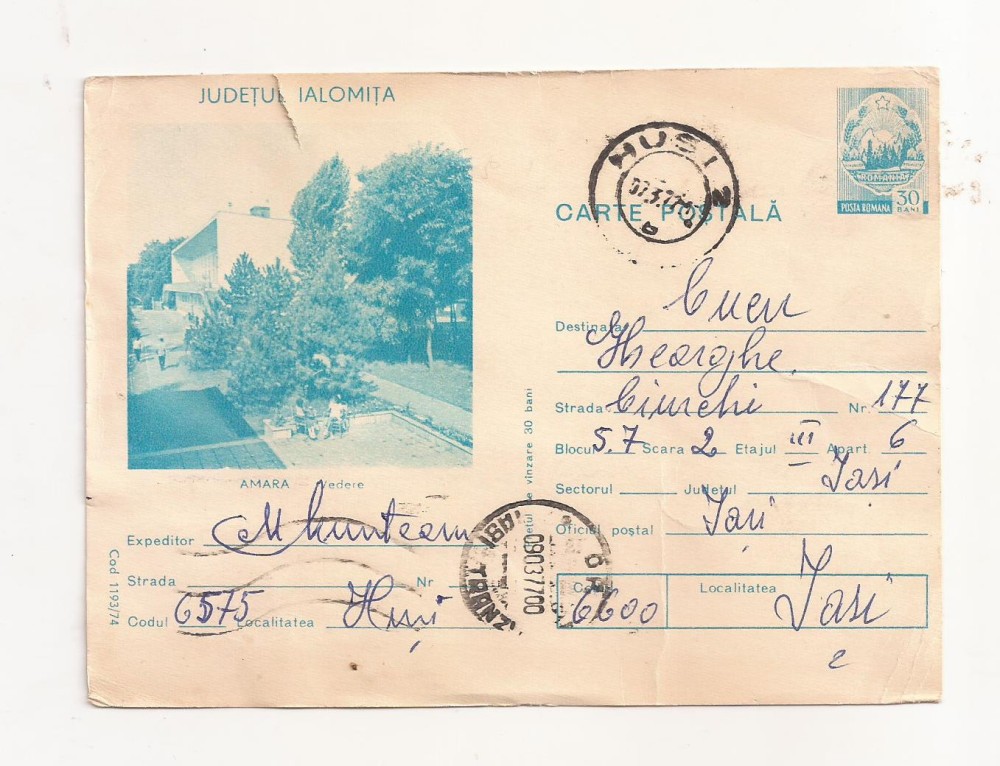 JUDEȚUL IALOMIȚA
ROMANIA
POSTA ROMANA 30 BANI
HUSI 2
CARTE POȘTALĂ
Cucu
Destinatar
Gheorghe
Strada Ciurchi Nr. 177
Blocul 5.7 Scara 2 Etajul III Apart. 6
Sectorul Judetul Iasi
Oficiul postal Iasi
Codul 6600 Localitatea Iasi
2
AMARA Vedere
Expeditor M Munteanu
Strada Nr
Codul 6575 Localitatea Husi
Cod 1193/74
de vinzare 30 bani
09037700